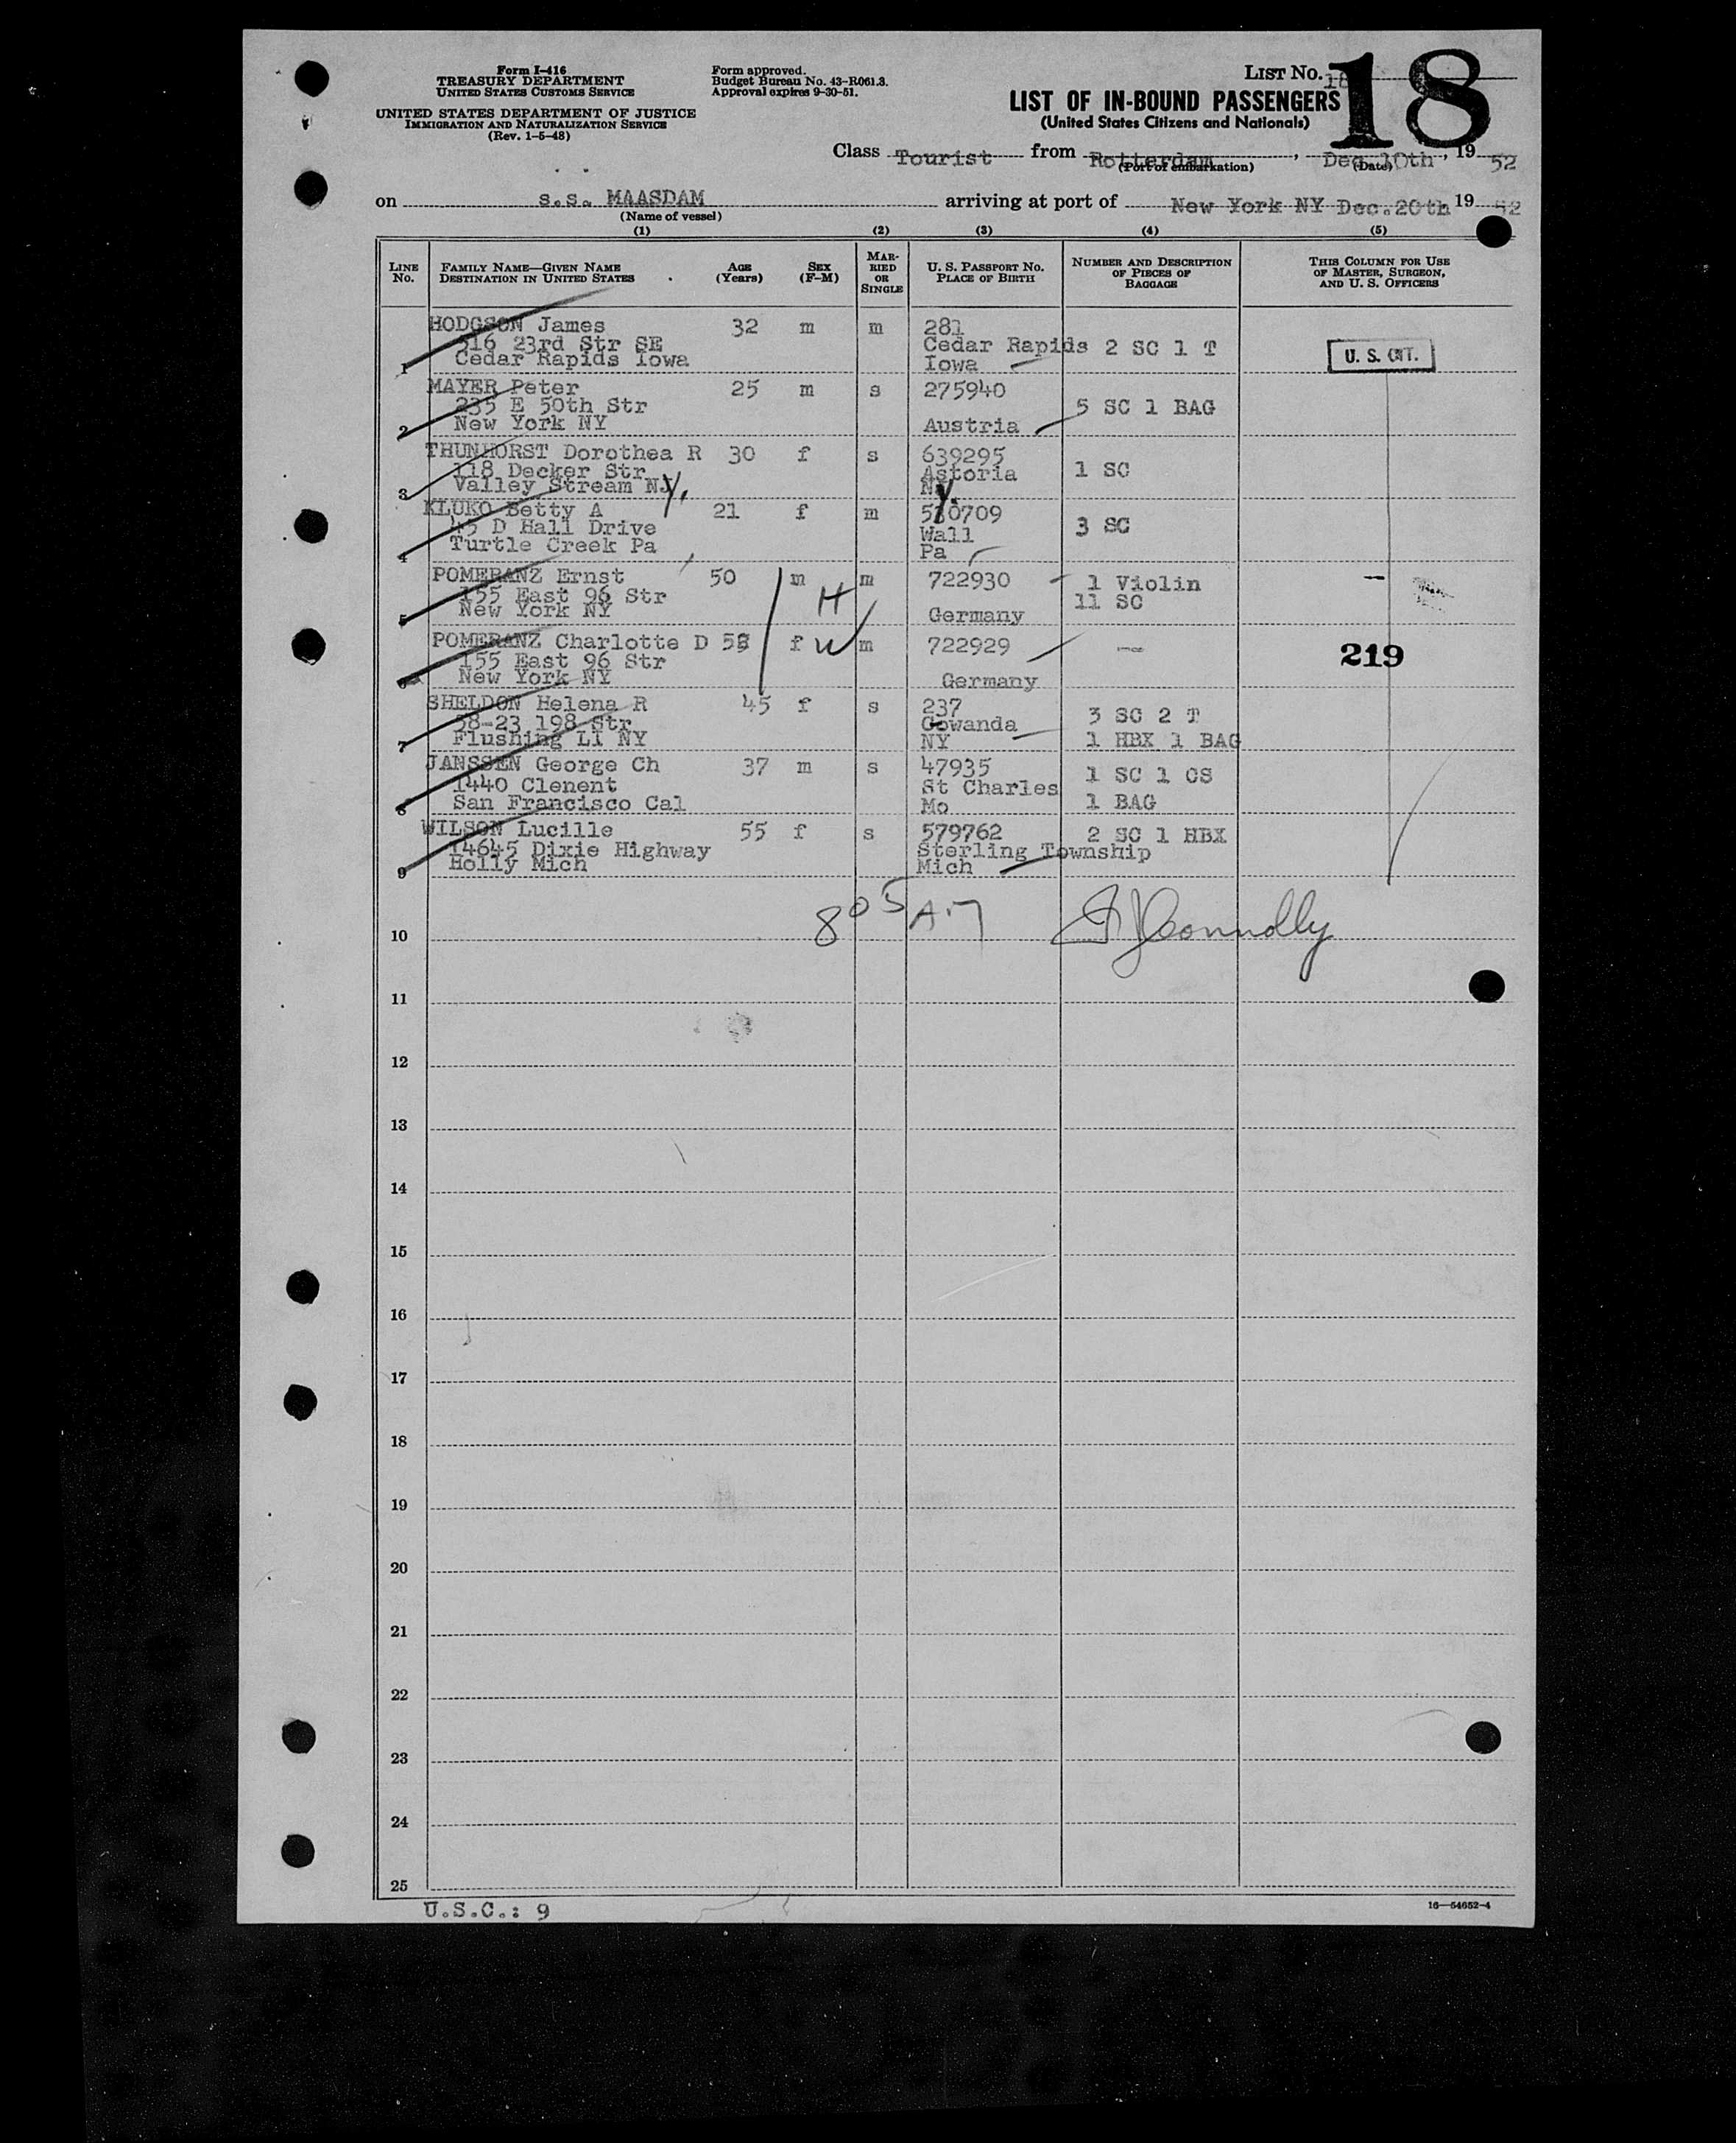 Form I-416
TREASURY DEPARTMENT
UNITED STATES CUSTOMS SERVICE
UNITED STATES DEPARTMENT OF JUSTICE
IMMIGRATION AND NATURALIZATION SERVICE
(Rev. 1-5-48)
Form approved.
Budget Bureau No. 43-R061.3.
Approval expires 9-30-51.
LIST No. 18
18
LIST OF IN-BOUND PASSENGERS
(United States Citizens and Nationals)
Class Tourist from Rotterdam, Dec 10th, 19 52
(Port of embarkation) (Date)
on s.s. MAASDAM arriving at port of New York NY Dec.20th 19 52
(Name of vessel)
(1) (2) (3) (4) (5)
LINE No. FAMILY NAME—GIVEN NAME DESTINATION IN UNITED STATES AGE (Years) SEX (F-M) MARRIED OR SINGLE U. S. PASSPORT NO. PLACE OF BIRTH NUMBER AND DESCRIPTION OF PIECES OF BAGGAGE THIS COLUMN FOR USE OF MASTER, SURGEON, AND U. S. OFFICERS
HODGSON James 32 m m 281
316 23rd Str SE Cedar Rapids 2 SC 1 T U. S. CIT.
1 Cedar Rapids Iowa Iowa
MAYER Peter 25 m s 275940
235 E 50th Str 5 SC 1 BAG
2 New York NY Austria
THUNHORST Dorothea R 30 f s 639295
118 Decker Str Astoria 1 SC
3 Valley Stream NY. NY.
KLUKO Betty A 21 f m 530709
45 D Hall Drive Wall 3 SC
4 Turtle Creek Pa Pa
POMERANZ Ernst 50 m H m 722930 1 Violin —
155 East 96 Str 11 SC
5 New York NY Germany
POMERANZ Charlotte D 58 f W m 722929 — 219
155 East 96 Str
6 New York NY Germany
SHELDON Helena R 45 f s 237
38-23 198 Str Gowanda 3 SC 2 T
7 Flushing LI NY NY 1 HBX 1 BAG
JANSSEN George Ch 37 m s 47935
1440 Clenent St Charles 1 SC 1 CS
8 San Francisco Cal Mo 1 BAG
WILSON Lucille 55 f s 579762 2 SC 1 HBX
14645 Dixie Highway Sterling Township
9 Holly Mich Mich
8 05 AM Connolly
10
11
12
13
14
15
16
17
18
19
20
21
22
23
24
25
U.S.C.: 9
16—54652-4